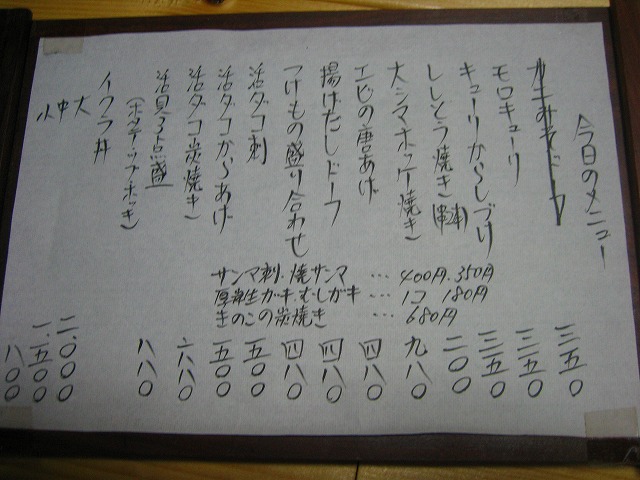 今日のメニュー
カニみそドーフ 三五〇
モロキューリ 三五〇
キューリからしづけ 三五〇
ししとう焼き 二〇〇
大シマホッケ焼き 九八〇
エビの唐あげ 四八〇
揚げだしドーフ 四八〇
つけもの盛り合わせ 四八〇
活ダコ刺 五〇〇
活ダコからあげ 五〇〇
活ダコ炭焼き 六八〇
活貝3点盛
(ホタテ、ツブ、ホッキ) 八八〇
イクラ丼
大 二、〇〇〇
中 一、五〇〇
小 八〇〇
サンマ刺・焼サンマ … 400円・350円
厚岸生ガキ・むしガキ … 1コ 180円
きのこの炭焼き … 680円